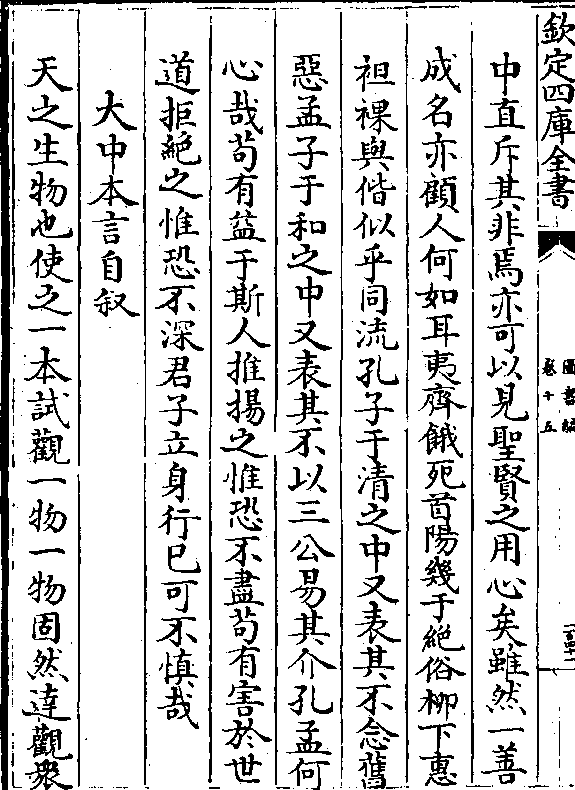 欽定四庫全書
圖書編
卷十五
中直斥其非焉亦可以見聖賢之用心矣雖然一善
成名亦顧人何如耳夷齊餓死首陽幾于絶俗柳下惠
袒裸與偕似乎同流孔子于清之中又表其不念舊
惡孟子于和之中又表其不以三公易其介孔孟何
心哉苟有益于斯人推揚之惟恐不盡苟有害於世
道拒絶之惟恐不深君子立身行已可不慎哉
大中本言自叙
天之生物也使之一本試觀一物一物固然達觀衆